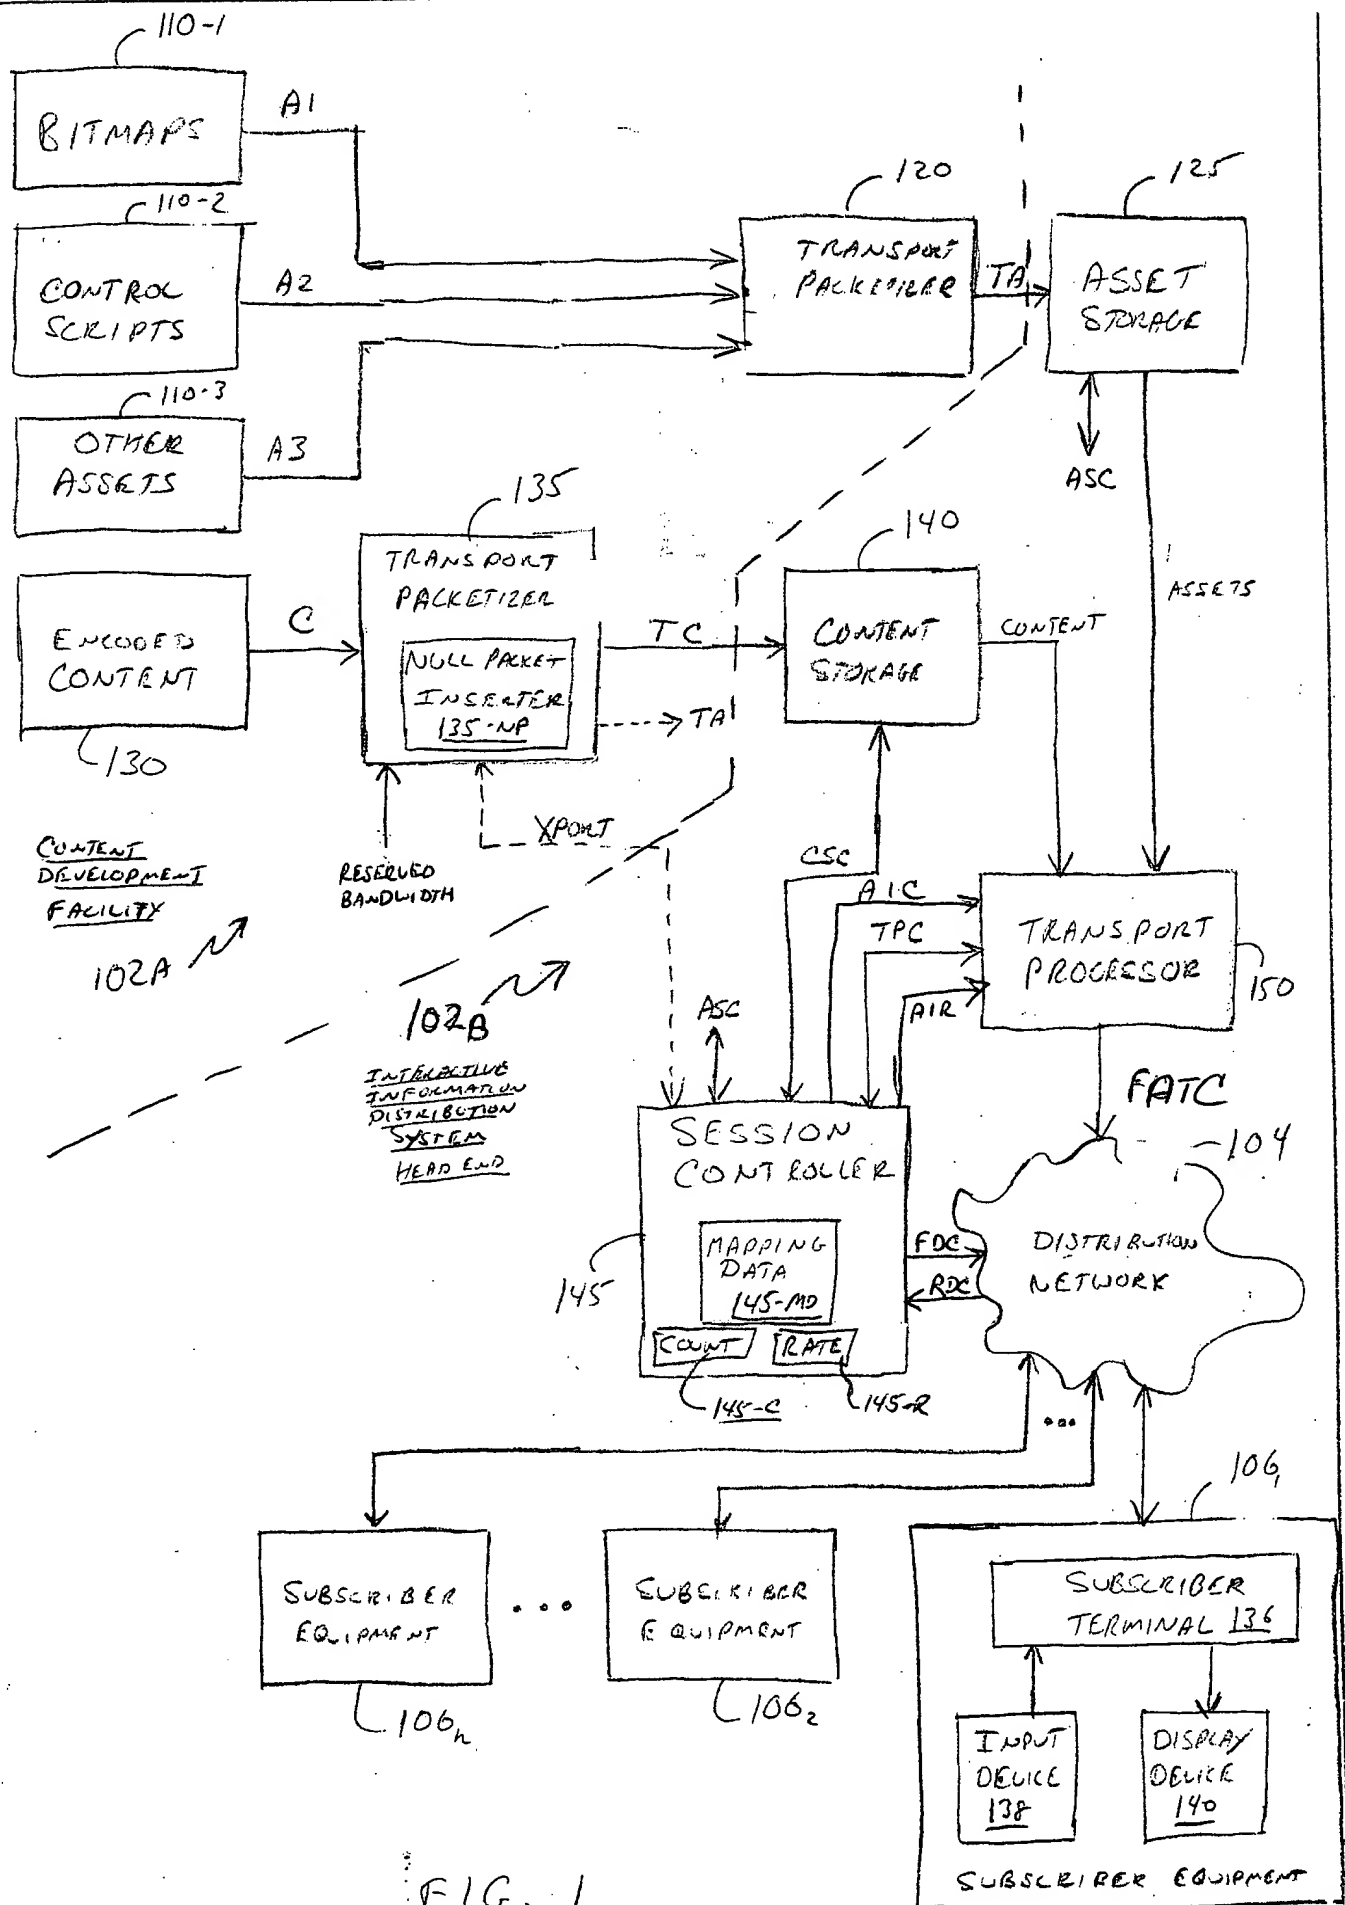 110-1
BITMAPS
A1
110-2
CONTROL
SCRIPTS
A2
110-3
OTHER
ASSETS
A3
120
TRANSPORT
PACKETIZER
TA
125
ASSET
STORAGE
ASC
ASSETS
135
TRANSPORT
PACKETIZER
NULL PACKET
INSERTER
135-NP
TA
ENCODED
CONTENT
130
C
TC
140
CONTENT
STORAGE
CONTENT
XPORT
RESERVED
BANDWIDTH
CONTENT
DEVELOPMENT
FACILITY
102A
102B
INTERACTIVE
INFORMATION
DISTRIBUTION
SYSTEM
HEAD END
ASC
CSC
AIC
TPC
AIR
TRANSPORT
PROCESSOR
150
FATC
SESSION
CONTROLLER
MAPPING
DATA
145-MD
COUNT
RATE
145
145-C
145-R
FDC
RDC
104
DISTRIBUTION
NETWORK
...
SUBSCRIBER
EQUIPMENT
106n
...
SUBSCRIBER
EQUIPMENT
1062
1061
SUBSCRIBER
TERMINAL 136
INPUT
DEVICE
138
DISPLAY
DEVICE
140
SUBSCRIBER EQUIPMENT
FIG. 1